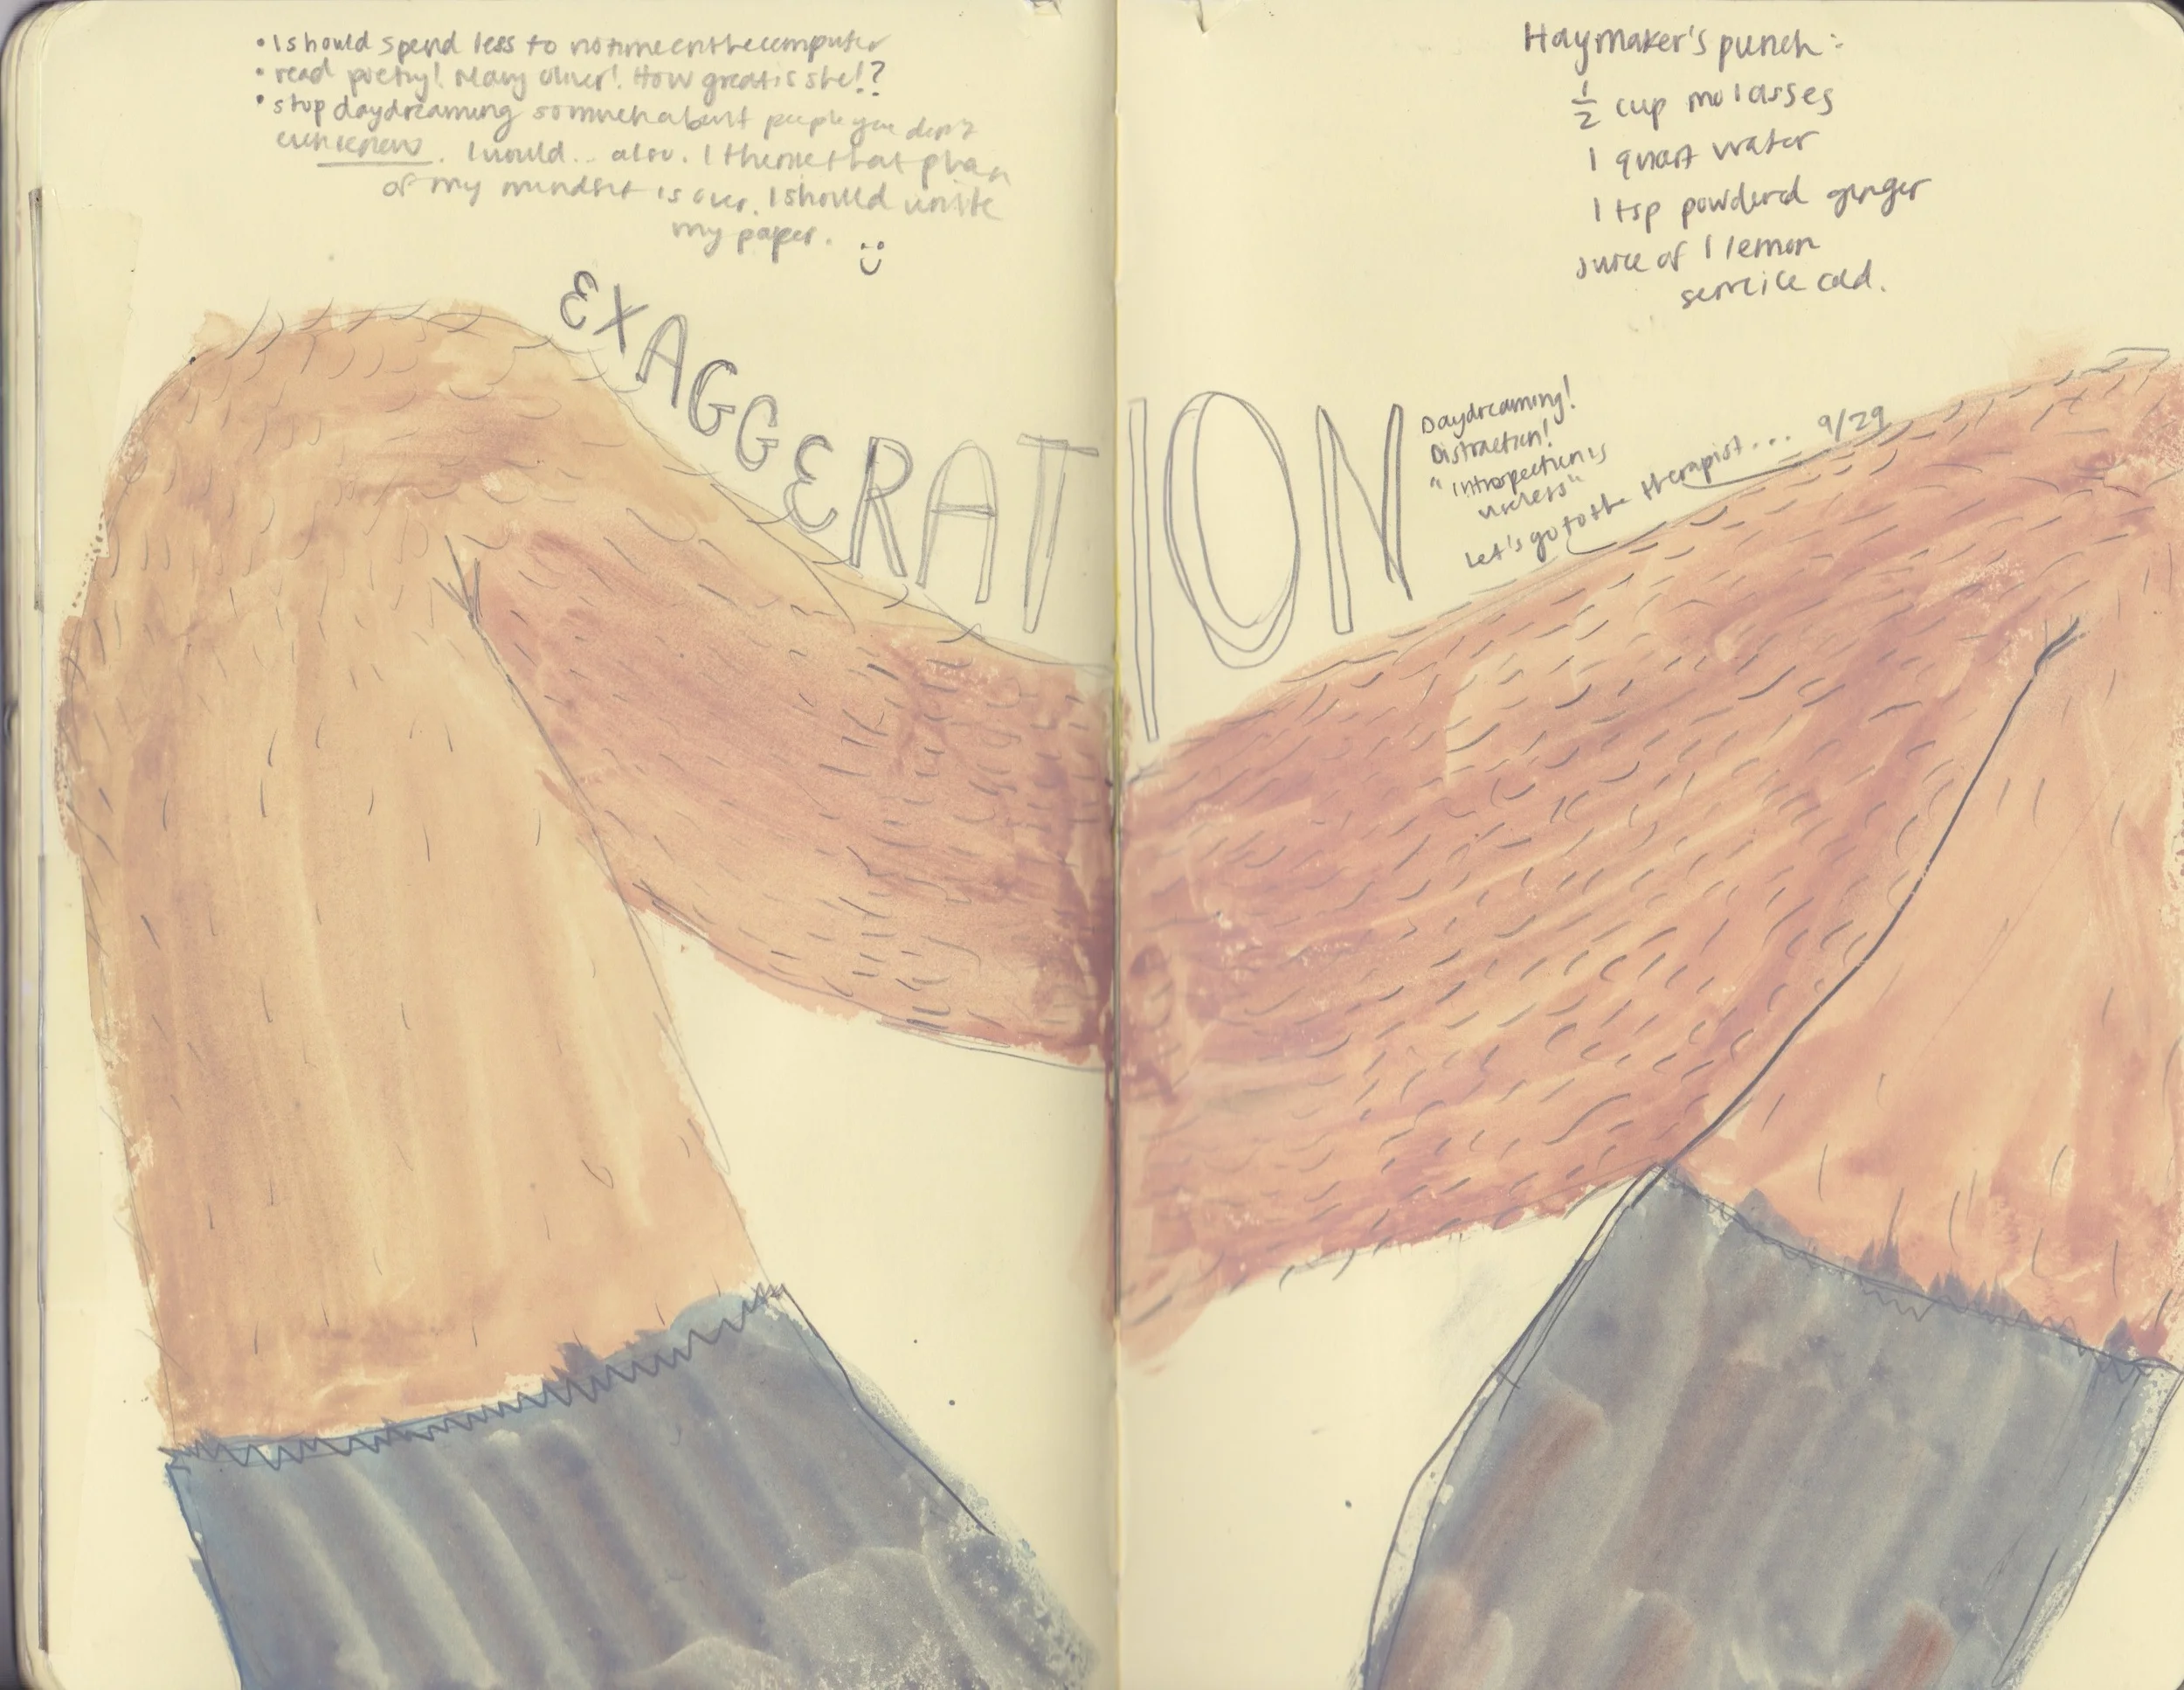 • I should spend less to no time on the computer
• read poetry! Mary Oliver! How great is she!?
• stop daydreaming so much about people you don't
even know. I would.. also. I think that phase
of my mindset is over. I should write
my paper. :)
EXAGGERATION
Haymaker's punch:
1/2 cup molasses
1 quart water
1 tsp powdered ginger
juice of 1 lemon
cold.
Daydreaming!
Distraction!
"introspection is
useless"
let's go to the therapist... 9/29